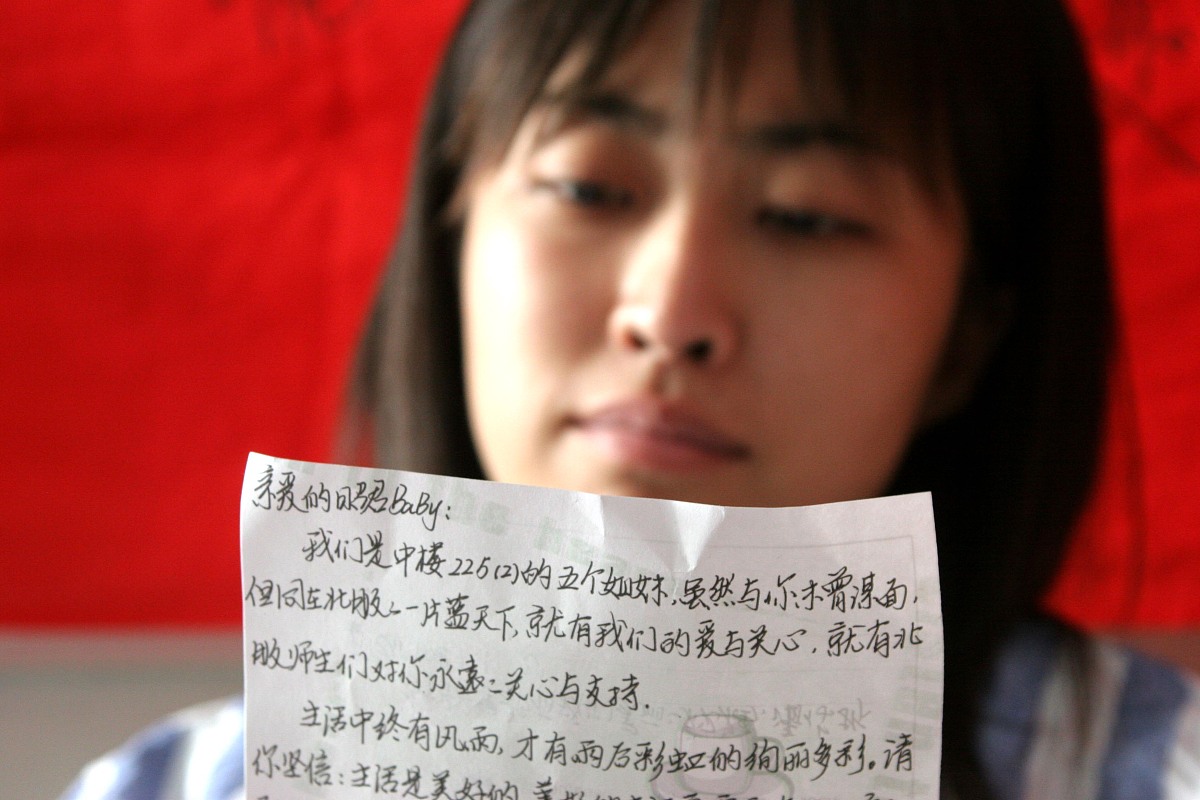 亲爱的日照Baby:
我们是中楼225(2)的五个姐妹,虽然与你未曾谋面,
但同在北服这一片蓝天下,就有我们的爱与关心,就有北
服师生们对你永远的关心与支持.
生活中终有风雨,才有雨后彩虹的绚丽多彩。请
你坚信:生活是美好的